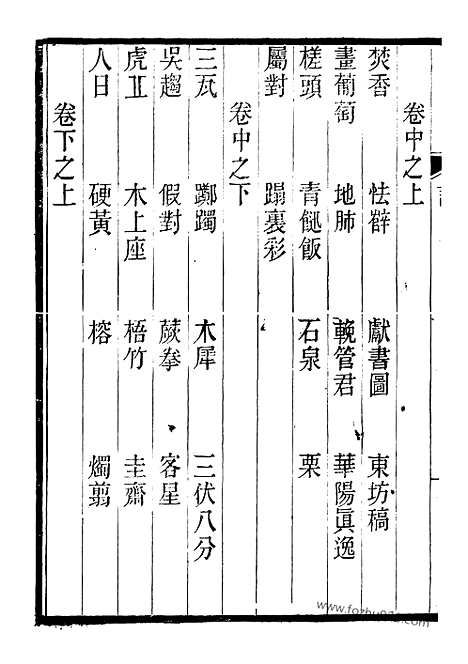 卷中之上
焚香 怯辟 獻書圖 東坊稿
畫葡萄 地肺 輓管君 華陽眞逸
槎頭 青飿飯 石泉 栗
屬對 蹋裏彩
卷中之下
三瓦 躑躅 木犀 三伏八分
吳趨 假對 蕨拳 客星
虎丘 木上座 梧竹 圭齋
人日 硬黃 榕 燭翦
卷下之上